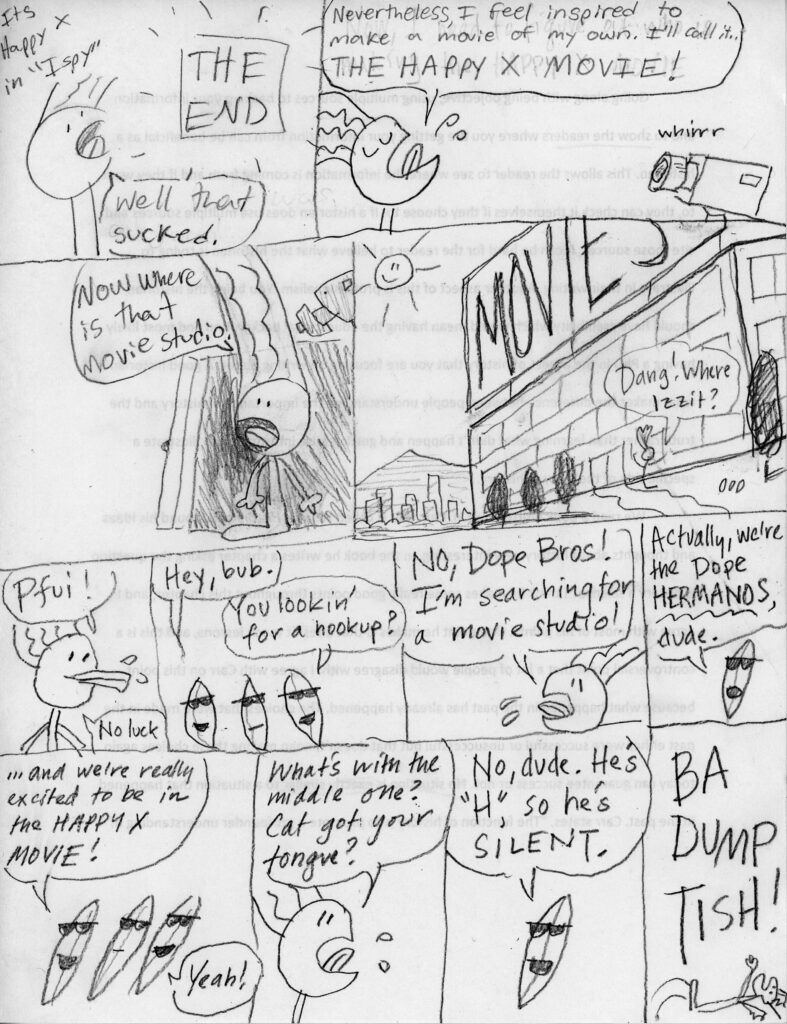 Its
Happy X
in "Ispy"
THE
END
Well that
sucked.
Nevertheless, I feel inspired to
make a movie of my own. I'll call it...
THE HAPPY X MOVIE!
whirrr
Now where
is that
movie studio?
MOVIE
Dang! Where
Izzit?
Pfui!
No luck
Hey, bub.
You lookin'
for a hookup?
No, Dope Bros!
I'm searching for
a movie studio!
Actually, we're
the Dope
HERMANOS,
dude.
...and we're really
excited to be in
the HAPPY X
MOVIE!
Yeah!
What's with the
middle one?
Cat got your
tongue?
No, dude. He's
"H", so he's
SILENT.
BA
DUMP
TISH!